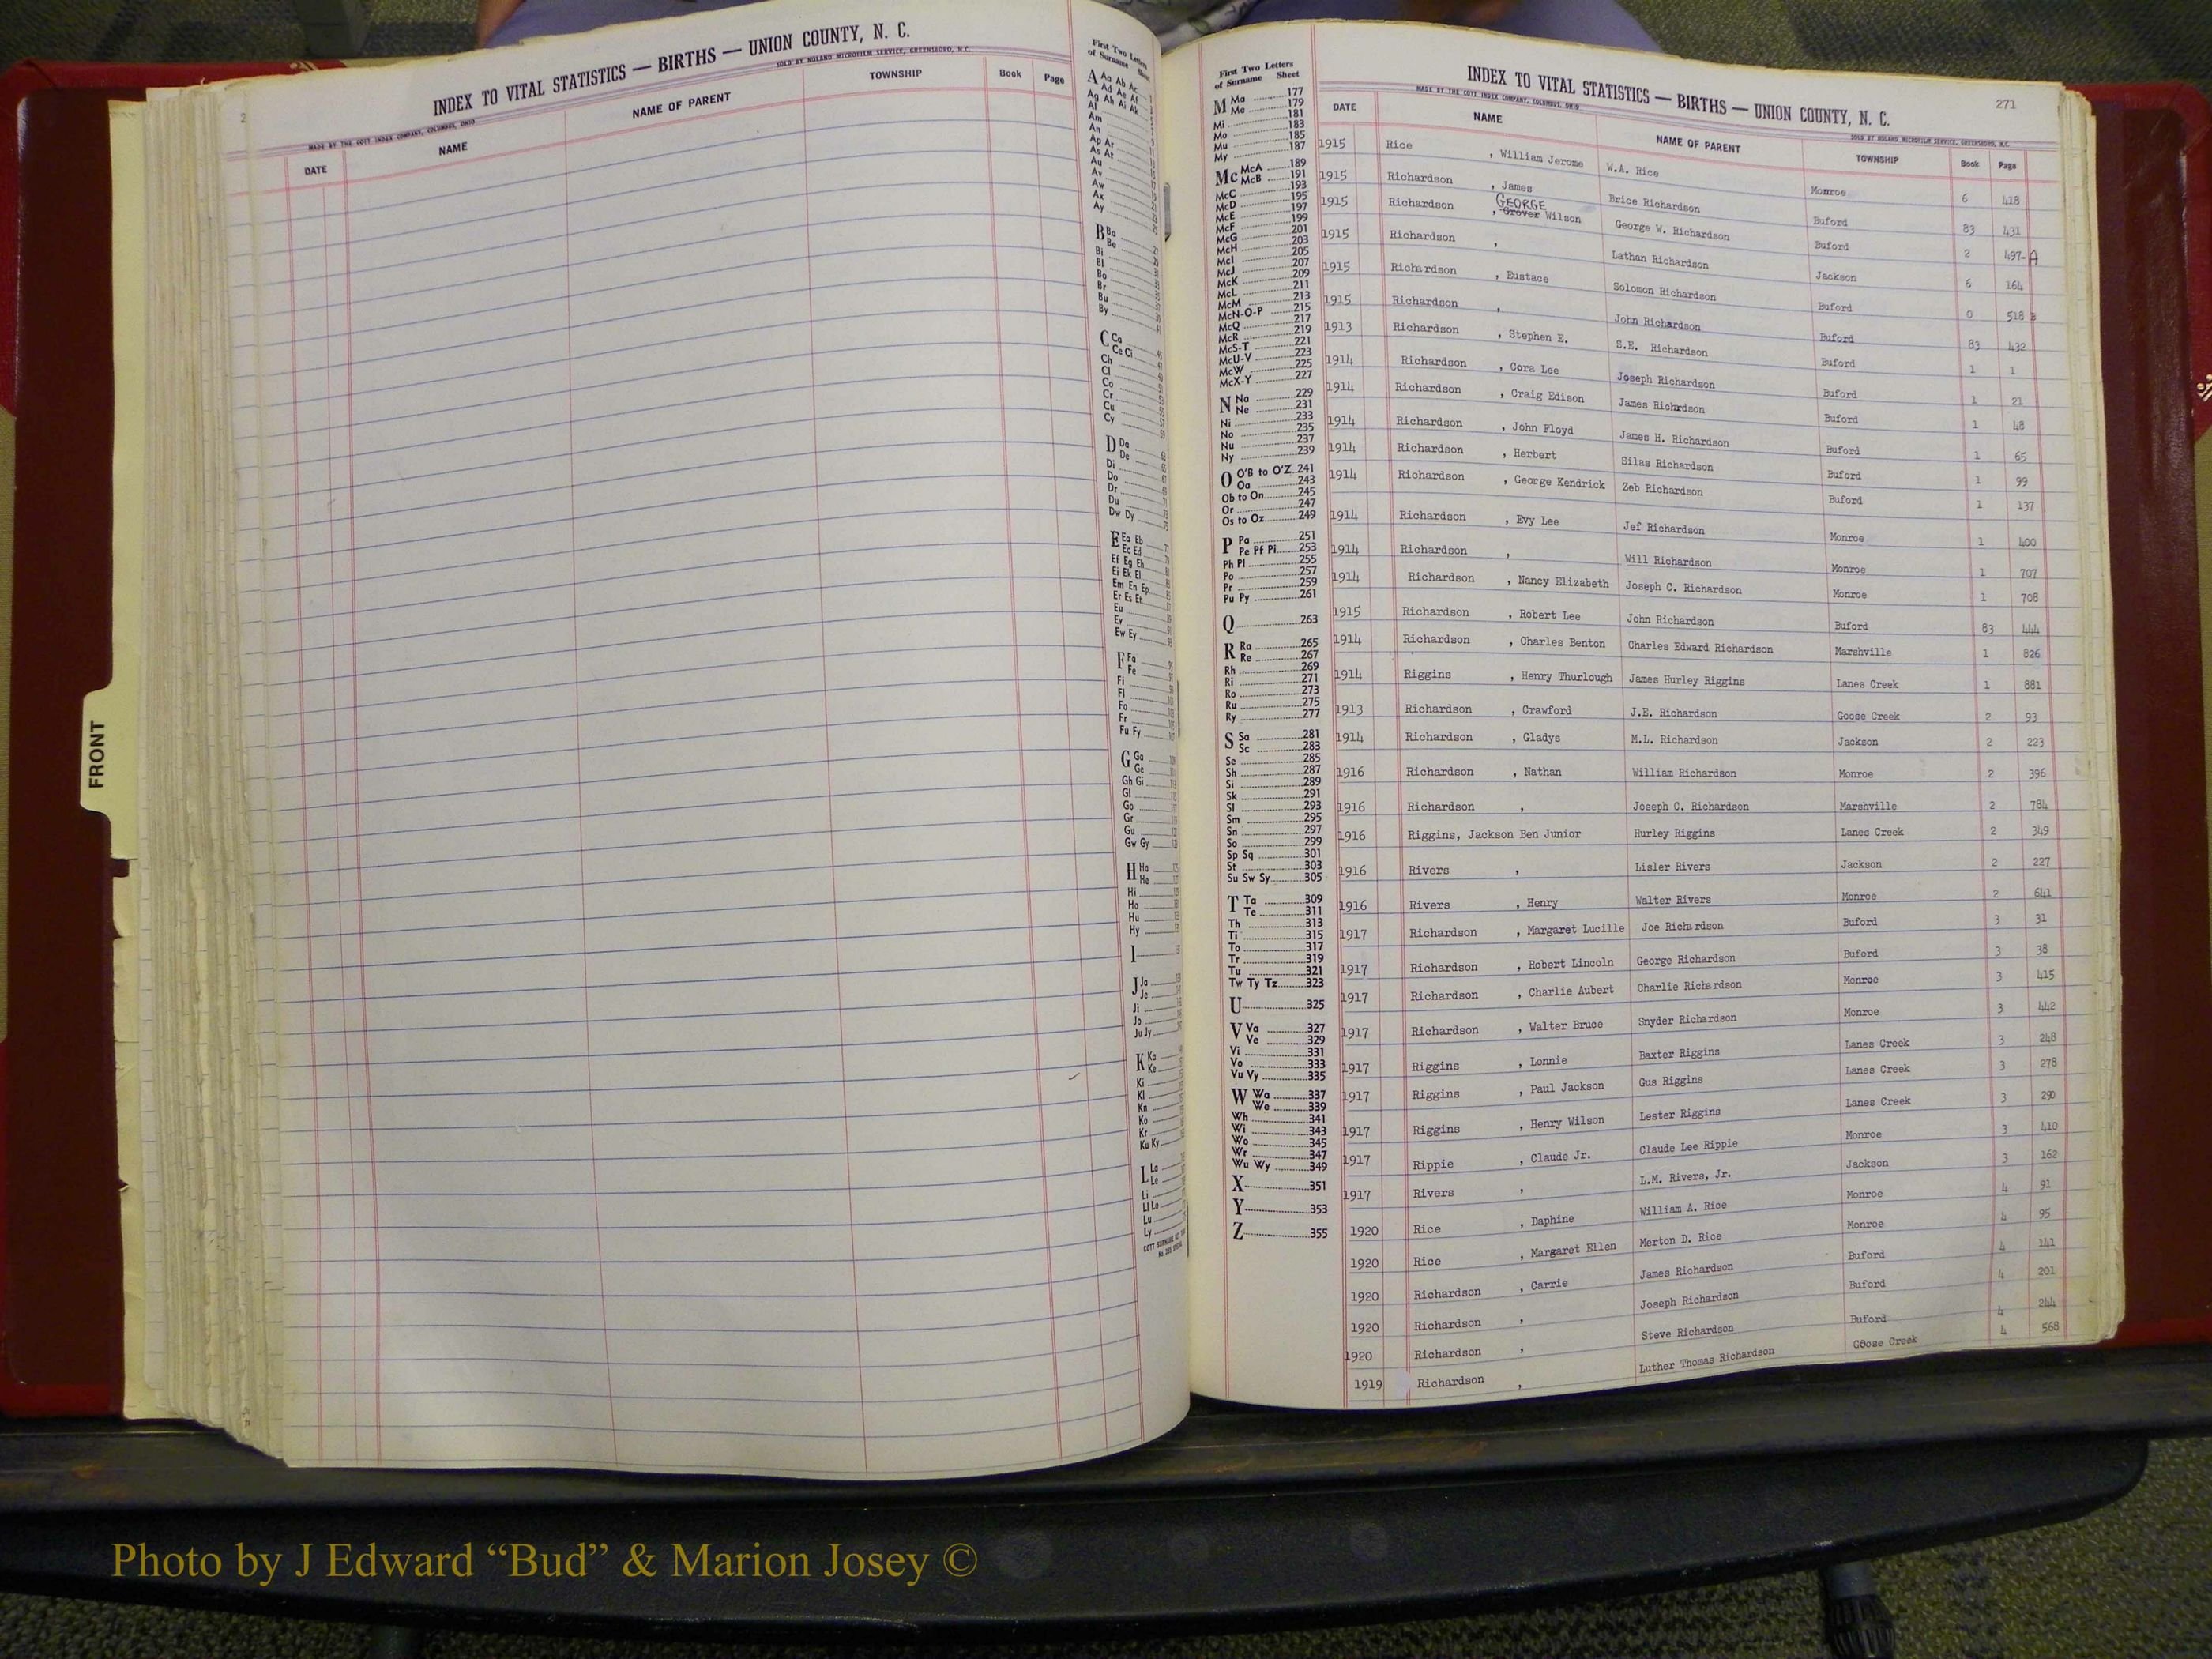 2
INDEX TO VITAL STATISTICS — BIRTHS — UNION COUNTY, N. C.
MADE BY THE COTT INDEX COMPANY, COLUMBUS, OHIO SOLD BY NOLAND MICROFILM SERVICE, GREENSBORO, N.C.
DATE NAME NAME OF PARENT TOWNSHIP Book Page
First Two Letters
of Surname Sheet
A Aa Ab Ac
Ad Ae Af
Ag Ah Ai Ak
Al
Am
An
Ap Ar
As At
Au
Av
Aw
Ax
Ay
B Ba
Be
Bi
Bl
Bo
Br
Bu
By
C Ca
Ce Ci
Ch
Cl
Co
Cr
Cu
Cy
D Da
De
Di
Do
Dr
Du
Dw Dy
E Ea Eb
Ec Ed
Ef Eg Eh
Ei Ek El
Em En Ep
Er Es Et
Eu
Ev
Ew Ey
F Fa
Fe
Fi
Fl
Fo
Fr
Fu Fy
G Ga
Ge
Gh Gi
Gl
Go
Gr
Gu
Gw Gy
H Ha
He
Hi
Ho
Hu
Hy
I
J Ja
Je
Ji
Jo
Ju Jy
K Ka
Ke
Ki
Kl
Kn
Ko
Kr
Ku Ky
L La
Le
Li
Ll Lo
Lu
Ly
FRONT
First Two Letters
of Surname Sheet
M Ma 177
Me 179
Mi 181
Mo 183
Mu 185
My 187
Mc McA 189
McB 191
McC 193
McD 195
McE 197
McF 199
McG 201
McH 203
McI 205
McJ 207
McK 209
McL 211
McM 213
McN-O-P 215
McQ 217
McR 219
McS-T 221
McU-V 223
McW 225
McX-Y 227
N Na 229
Ne 231
Ni 233
No 235
Nu 237
Ny 239
O O'B to O'Z 241
Oa 243
Ob to On 245
Or 247
Os to Oz 249
P Pa 251
Pe Pf Pi 253
Ph Pl 255
Po 257
Pr 259
Pu Py 261
Q 263
R Ra 265
Re 267
Rh 269
Ri 271
Ro 273
Ru 275
Ry 277
S Sa 281
Sc 283
Se 285
Sh 287
Si 289
Sk 291
Sl 293
Sm 295
Sn 297
So 299
Sp Sq 301
St 303
Su Sw Sy 305
T Ta 309
Te 311
Th 313
Ti 315
To 317
Tr 319
Tu 321
Tw Ty Tz 323
U 325
V Va 327
Ve 329
Vi 331
Vo 333
Vu Vy 335
W Wa 337
We 339
Wh 341
Wi 343
Wo 345
Wr 347
Wu Wy 349
X 351
Y 353
Z 355
271
INDEX TO VITAL STATISTICS — BIRTHS — UNION COUNTY, N. C.
MADE BY THE COTT INDEX COMPANY, COLUMBUS, OHIO SOLD BY NOLAND MICROFILM SERVICE, GREENSBORO, N.C.
DATE NAME NAME OF PARENT TOWNSHIP Book Page
1915 Rice , William Jerome W.A. Rice Monroe 6 418
1915 Richardson , James Brice Richardson Buford 83 431
GEORGE
1915 Richardson , Grover Wilson George W. Richardson Buford 2 497-A
1915 Richardson , Lathan Richardson Jackson 6 164
1915 Richardson , Eustace Solomon Richardson Buford 0 518
1915 Richardson , John Richardson Buford 83 432
1913 Richardson , Stephen E. S.E. Richardson Buford 1 1
1914 Richardson , Cora Lee Joseph Richardson Buford 1 21
1914 Richardson , Craig Edison James Richardson Buford 1 48
1914 Richardson , John Floyd James H. Richardson Buford 1 65
1914 Richardson , Herbert Silas Richardson Buford 1 99
1914 Richardson , George Kendrick Zeb Richardson Buford 1 137
1914 Richardson , Evy Lee Jef Richardson Monroe 1 400
1914 Richardson , Will Richardson Monroe 1 707
1914 Richardson , Nancy Elizabeth Joseph C. Richardson Monroe 1 708
1915 Richardson , Robert Lee John Richardson Buford 83 444
1914 Richardson , Charles Benton Charles Edward Richardson Marshville 1 826
1914 Riggins , Henry Thurlough James Hurley Riggins Lanes Creek 1 881
1913 Richardson , Crawford J.E. Richardson Goose Creek 2 93
1914 Richardson , Gladys M.L. Richardson Jackson 2 223
1916 Richardson , Nathan William Richardson Monroe 2 396
1916 Richardson , Joseph C. Richardson Marshville 2 784
1916 Riggins, Jackson Ben Junior Hurley Riggins Lanes Creek 2 349
1916 Rivers , Lisler Rivers Jackson 2 227
1916 Rivers , Henry Walter Rivers Monroe 2 641
1917 Richardson , Margaret Lucille Joe Richardson Buford 3 31
1917 Richardson , Robert Lincoln George Richardson Buford 3 38
1917 Richardson , Charlie Aubert Charlie Richardson Monroe 3 415
1917 Richardson , Walter Bruce Snyder Richardson Monroe 3 442
1917 Riggins , Lonnie Baxter Riggins Lanes Creek 3 248
1917 Riggins , Paul Jackson Gus Riggins Lanes Creek 3 278
1917 Riggins , Henry Wilson Lester Riggins Lanes Creek 3 290
1917 Rippie , Claude Jr. Claude Lee Rippie Monroe 3 410
1917 Rivers , L.M. Rivers, Jr. Jackson 3 162
1920 Rice , Daphine William A. Rice Monroe 4 91
1920 Rice , Margaret Ellen Merton D. Rice Monroe 4 95
1920 Richardson , Carrie James Richardson Buford 4 141
1920 Richardson , Joseph Richardson Buford 4 201
1920 Richardson , Steve Richardson Buford 4 244
1919 Richardson , Luther Thomas Richardson Goose Creek 4 568
Photo by J Edward “Bud” & Marion Josey ©